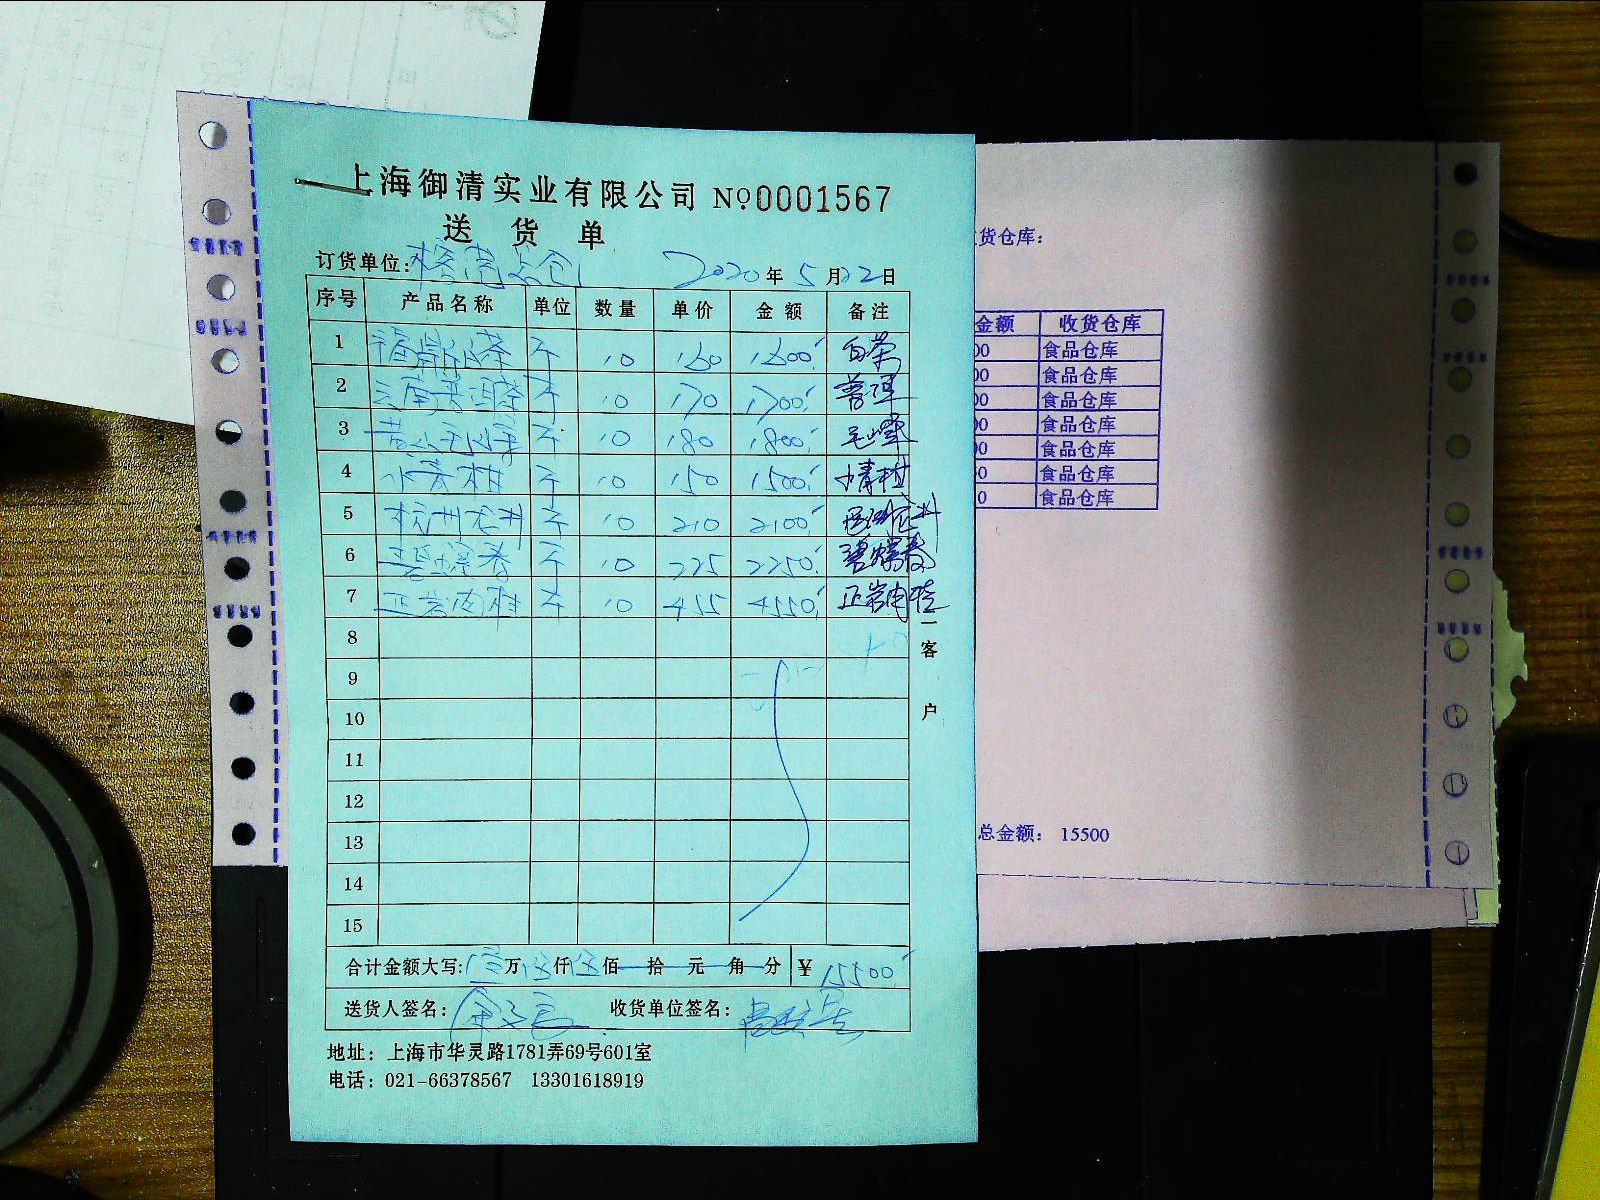 上海御清实业有限公司 №0001567
送货单
订货单位: 2020年5月22日
序号 产品名称 单位 数量 单价 金额 备注
1 福鼎白茶 斤 10 160 1600 白茶
2 云南普洱茶 斤 10 170 1700 普洱
3 黄山毛峰 斤 10 180 1800 毛峰
4 小青柑 斤 10 150 1500 小青柑
5 杭州龙井 斤 10 210 2100 西湖龙井
6 碧螺春 斤 10 225 2250 碧螺春
7 正岩肉桂 斤 10 455 4550 正岩肉桂
8
9
10
11
12
13
14
15
一客户
合计金额大写: 壹万伍仟伍佰拾元角分 ¥ 15500
送货人签名: 收货单位签名:
地址：上海市华灵路1781弄69号601室
电话：021-66378567 13301618919
货仓库：
金额 收货仓库
00 食品仓库
00 食品仓库
00 食品仓库
00 食品仓库
00 食品仓库
0 食品仓库
0 食品仓库
总金额： 15500